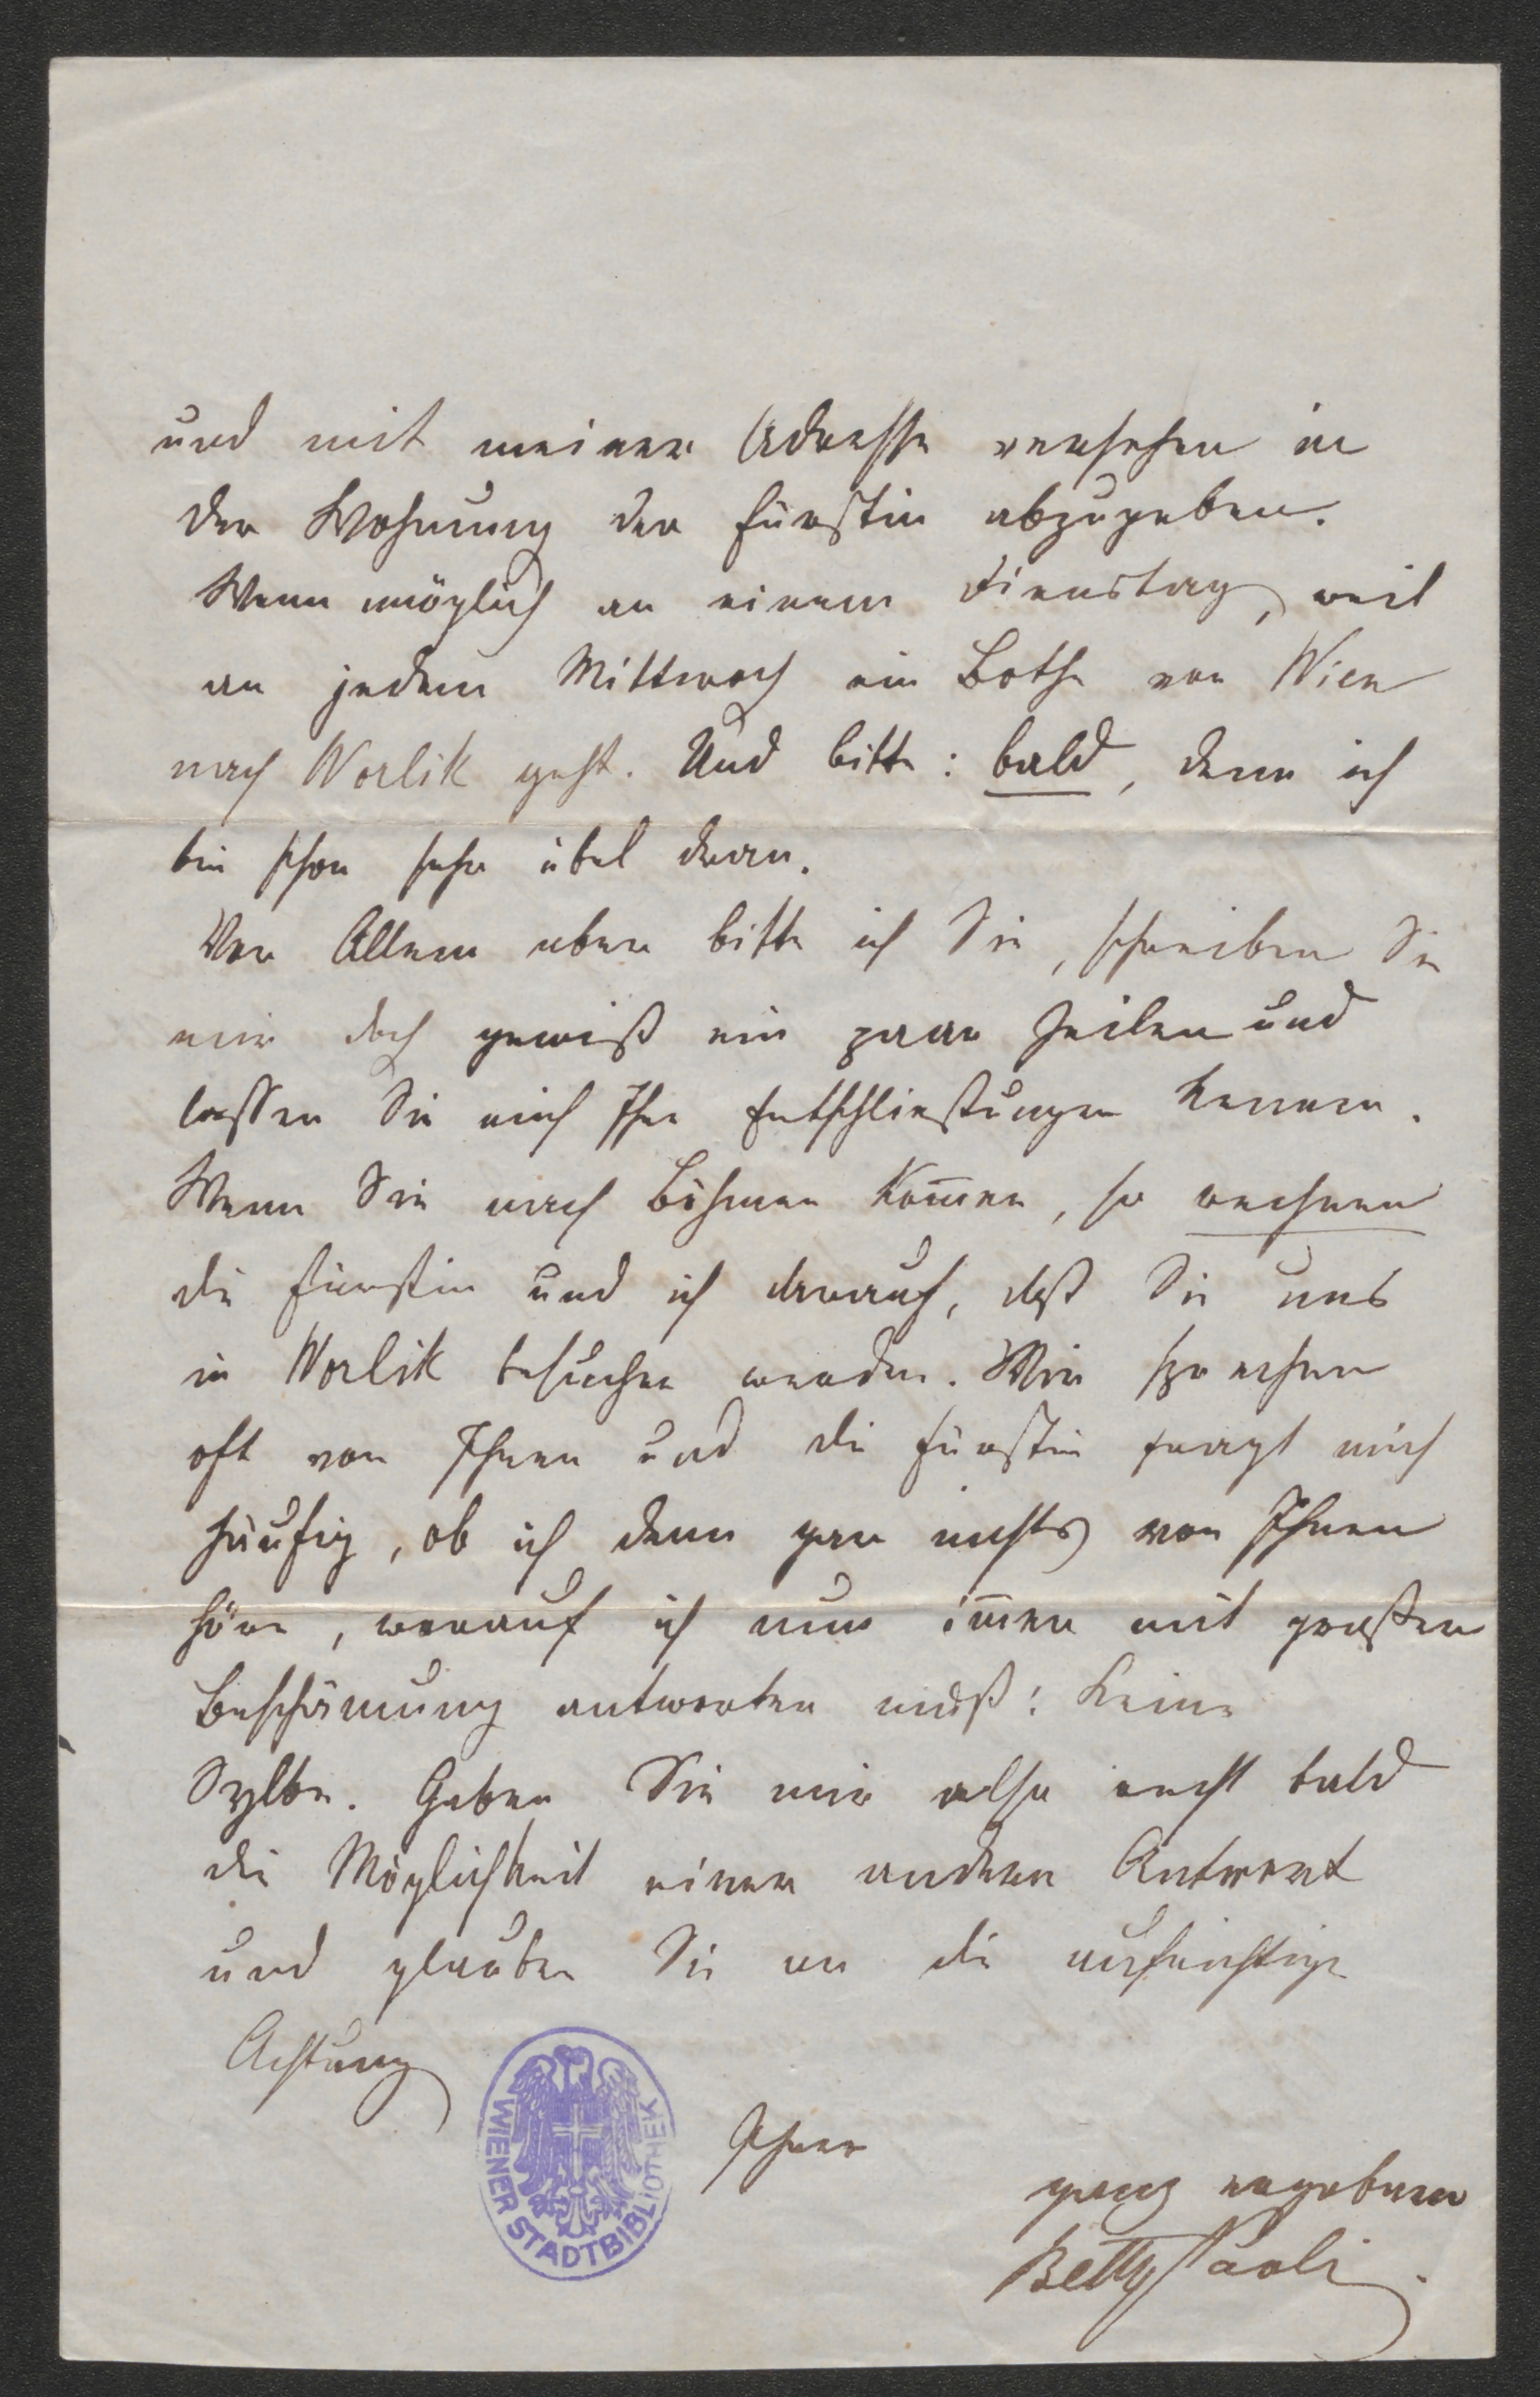 und mit meiner Adresse versehen in
der Wohnung der Fürstin abzugeben.
Wenn möglich an einem Dienstag, weil
an jedem Mittwoch ein Bothe von Wien
nach Worlik geht. Und bitte: bald, denn ich
bin schon sehr übel dran.
Vor Allem aber bitte ich Sie, schreiben Sie
mir doch gewiß ein paar Zeilen und
lassen Sie mich Ihre Entschließungen kennen.
Wenn Sie nach Böhmen kom̄en, so rechnen
die Fürstin und ich darauf, daß Sie uns
in Worlik besuchen werden. Wir sprechen
oft von Ihnen und die Fürstin fragt mich
häufig, ob ich denn gar nichts von Ihnen
höre, worauf ich nun im̄er mit großer
Beschämung antworten muß: keine
Sylbe. Geben Sie mir also recht bald
die Möglichkeit einer andern Antwort
und glauben Sie an die aufrichtige
Achtung
Ihrer
ganz ergebenen
Betty Paoli.
WIENER STADTBIBLIOTHEK